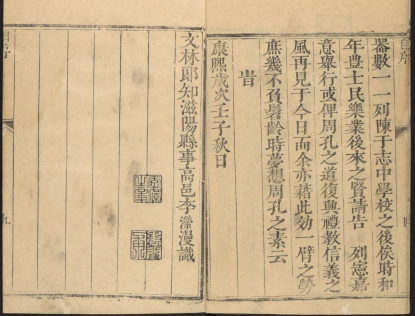 器數一一列陳于志中學校之後俟時和
年豊士民樂業後來之賢請告 列憲嘉
意舉行或俾周孔之道復興禮教信義之
風再見于今日而余亦藉此効一臂之勞
庶幾不負髫齡時夢想周孔之素云
旹
康熙歲次壬子秋日
文林郎知滋陽縣事高邑李濚漫識
自序
自序
五